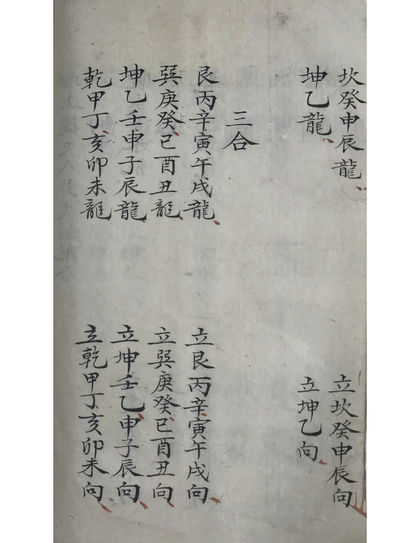 坎癸申辰龍 立坎癸申辰向
坤乙龍 立坤乙向
三合
艮丙辛寅午戌龍 立艮丙辛寅午戌向
巽庚癸巳酉丑龍 立巽庚癸巳酉丑向
坤乙壬申子辰龍 立坤壬乙申子辰向
乾甲丁亥卯未龍 立乾甲丁亥卯未向